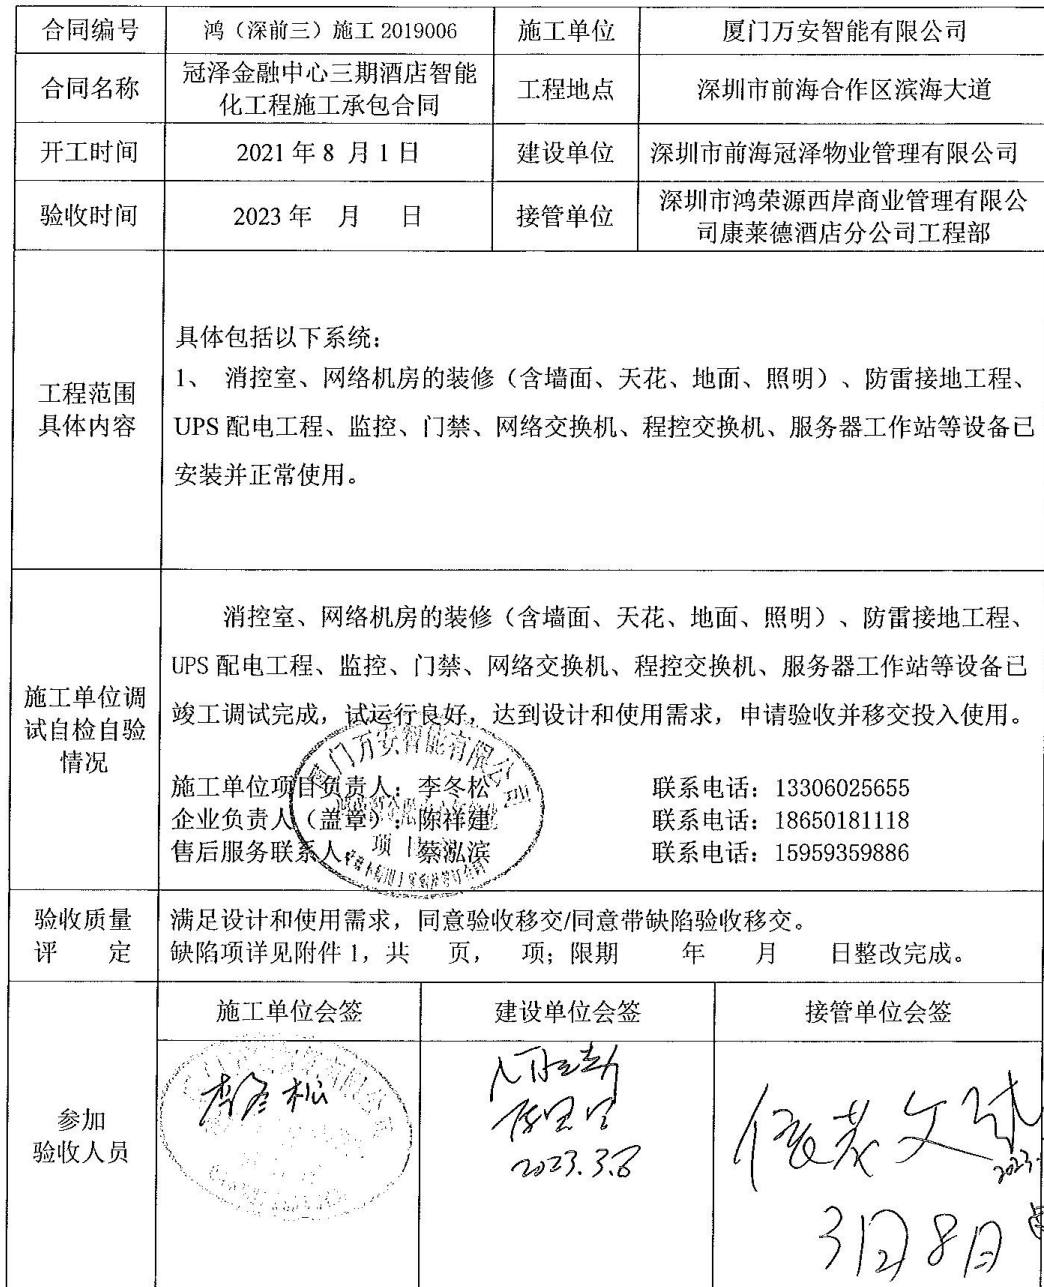 合同编号 鸿（深前三）施工 2019006 施工单位 厦门万安智能有限公司
合同名称 冠泽金融中心三期酒店智能化工程施工承包合同 工程地点 深圳市前海合作区滨海大道
开工时间 2021 年 8 月 1 日 建设单位 深圳市前海冠泽物业管理有限公司
验收时间 2023 年 月 日 接管单位 深圳市鸿荣源西岸商业管理有限公司康莱德酒店分公司工程部
工程范围
具体内容
具体包括以下系统：
1、 消控室、网络机房的装修（含墙面、天花、地面、照明）、防雷接地工程、
UPS 配电工程、监控、门禁、网络交换机、程控交换机、服务器工作站等设备已
安装并正常使用。
施工单位调
试自检自验
情况
消控室、网络机房的装修（含墙面、天花、地面、照明）、防雷接地工程、
UPS 配电工程、监控、门禁、网络交换机、程控交换机、服务器工作站等设备已
竣工调试完成，试运行良好，达到设计和使用需求，申请验收并移交投入使用。
施工单位项目负责人：李冬松 联系电话：13306025655
企业负责人（盖章）：陈祥建 联系电话：18650181118
售后服务联系人：蔡泓滨 联系电话：15959359886
厦门万安智能有限公司
验收质量
评 定
满足设计和使用需求，同意验收移交/同意带缺陷验收移交。
缺陷项详见附件 1，共 页， 项；限期 年 月 日整改完成。
参加
验收人员
施工单位会签 建设单位会签 接管单位会签
李冬松
2023.3.8
3月8日